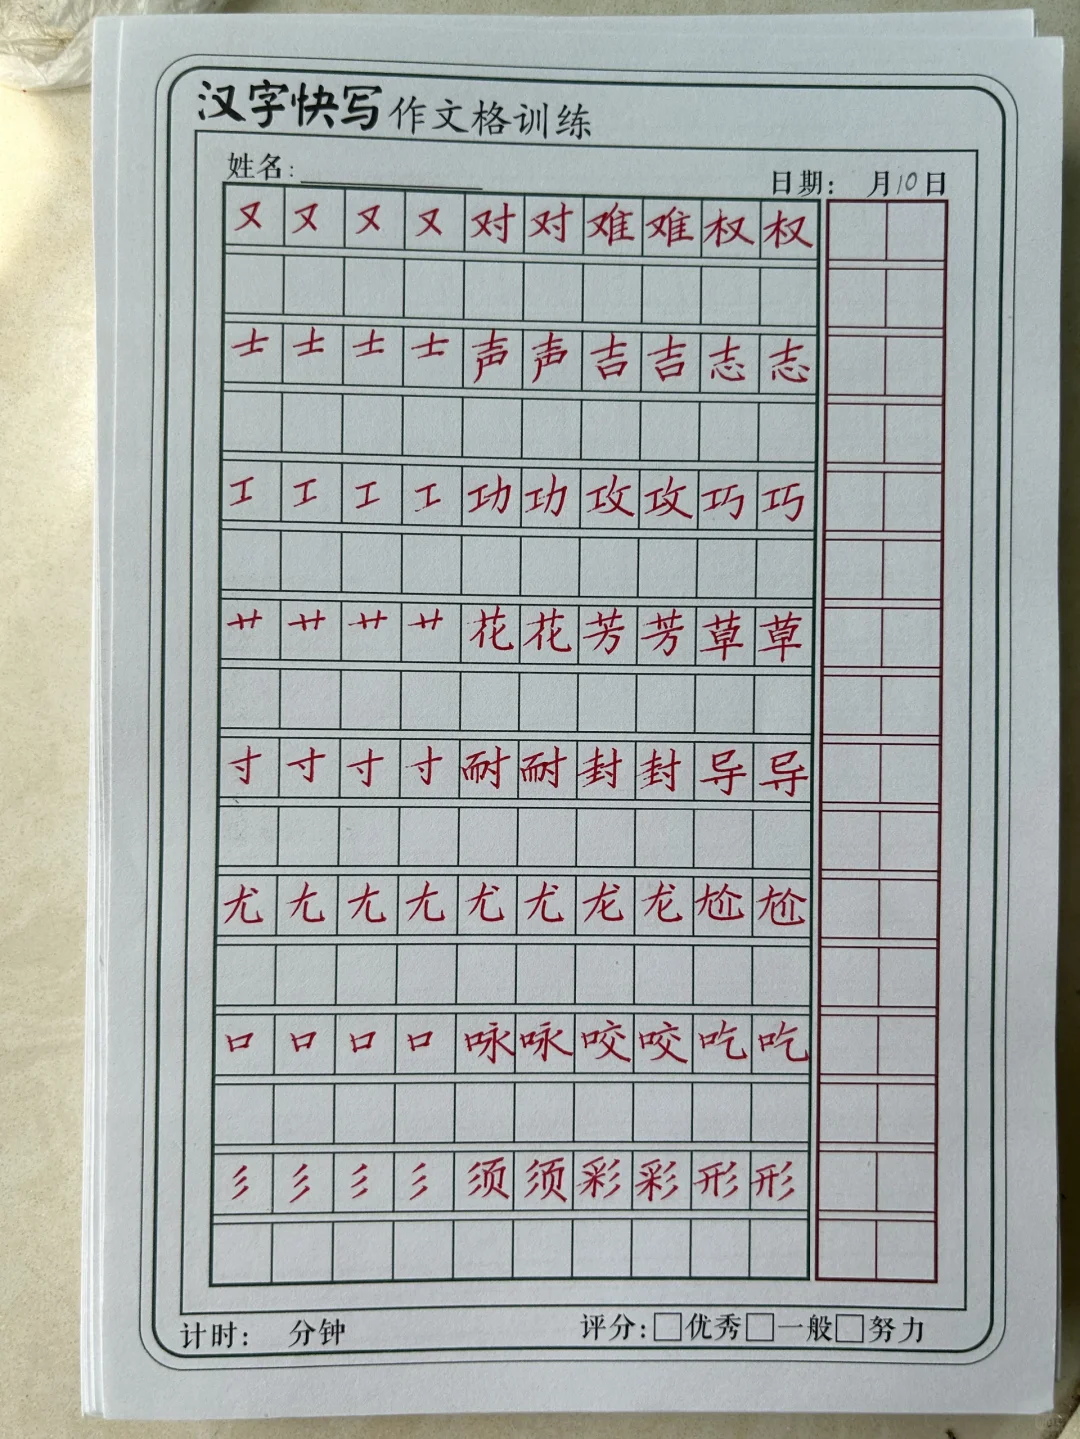 汉字快写作文格训练
姓名:
日期: 月10日
又又又又对对难难权权
士士士士声声吉吉志志
工工工工功功攻攻巧巧
艹艹艹艹花花芳芳草草
寸寸寸寸耐耐封封导导
尤尢尢尢尤尤龙龙尬尬
口口口口咏咏咬咬吃吃
彡彡彡彡须须彩彩形形
计时: 分钟
评分:□优秀□一般□努力